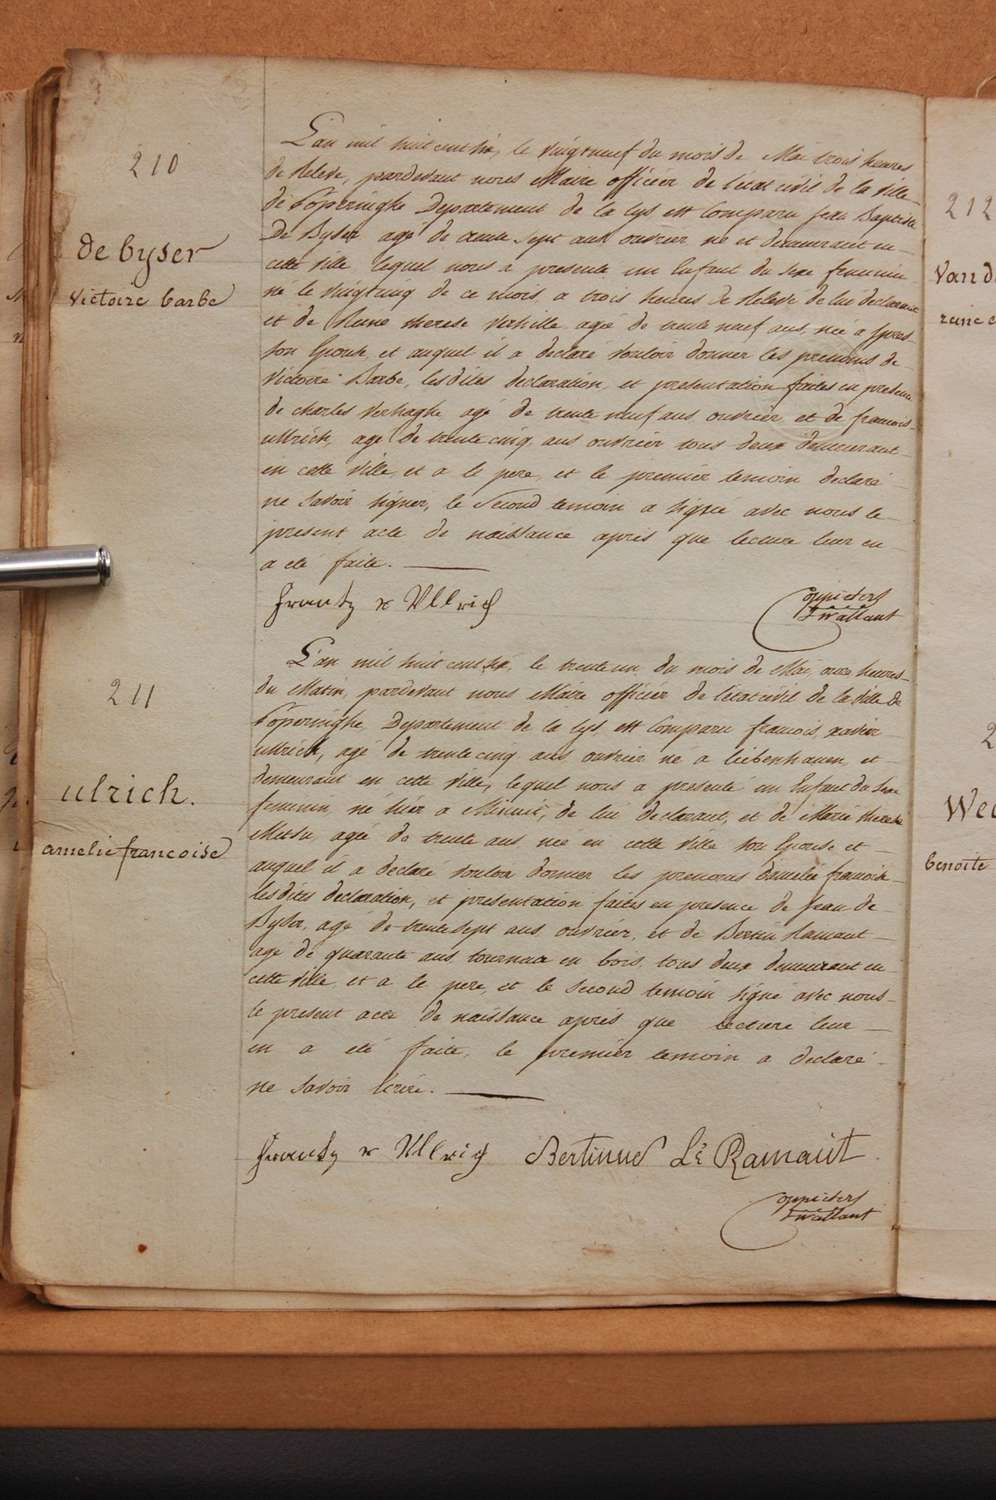 210
de byser
victoire barbe
L'an mil huit cent dix, le vingtneuf du mois de Mai trois heures
de relevé, pardevant nous Maire officier de l'état civil de la ville
de Poperinghe Departement de la Lys est comparu jean Baptiste
De Byser agé de trente sept ans ouvrier né et demeurant en
cette ville lequel nous a presenté un Enfant du sexe feminin
né le vingtcinq de ce mois a trois heures de relevé de lui declarant
et de Anne therese Verhille agée de trente neuf ans, née a Ypres
son Epouse, et auquel il a declaré vouloir donner les prenoms de
Victoire Barbe, les dites declaration et presentation faites en presence
de charles Verhaghe agé de trente neuf ans ouvrier et de francois
ullrich, agé de trente cinq ans ouvrier tous deux demeurant
en cette ville, et a le pere, et le premier temoin declaré
ne savoir signer, le second temoin a signé avec nous le
present acte de naissance après que lecture leur en
a été faite.
frantz x Ullrich
Coppieters
t'wallant
211
ulrich.
amelie francoise
L'an mil huit cent dix, le trente un du mois de Mai, onze heures
du Matin, pardevant nous Maire officier de l'état civil de la ville de
Poperinghe, Departement de la Lys, est comparu francois xavier
ullrich, agé de trente cinq ans ouvrier né a liebenhaven et
demeurant en cette ville, lequel nous a presenté un Enfant du sexe
feminin, né hier a Minuit, de lui declarant, et de Marie therese
agée de trente ans née en cette ville son Epouse et
auquel il a declaré vouloir donner les prenoms d'amelie francoise
les dites declaration, et presentation faites en presence de jean de
Byser, agé de trente sept ans ouvrier, et de Bertin Ramaut
agé de quarante ans, tourneur en bois, tous deux demeurant en
cette ville et a le pere, et le second temoin signé avec nous
le present acte de naissance après que lecture leur
en a été faite, le premier temoin a declaré
ne savoir Ecrire.
frantz x Ullrich Bertinus Lé Ramaut
Coppieters
t'wallant
212
Van d
Wee
benoite